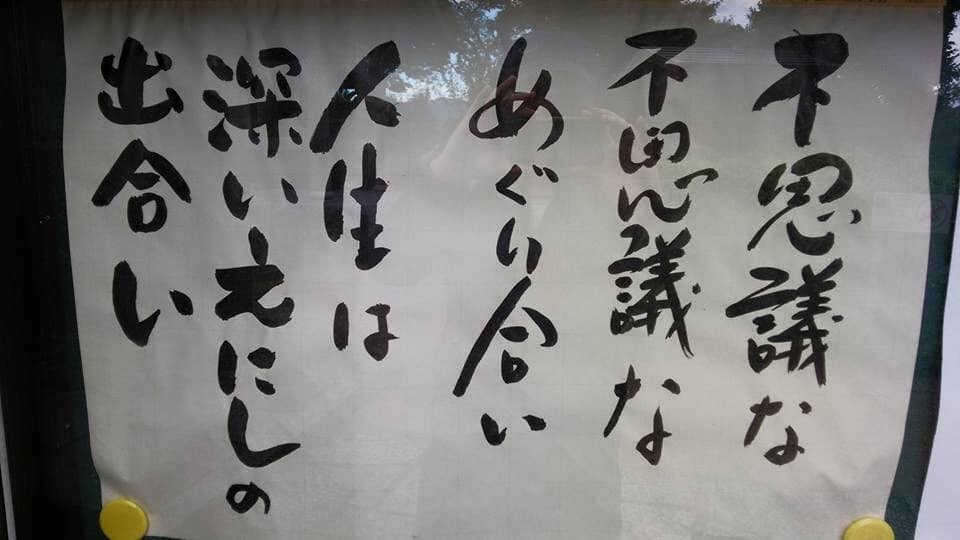 不思議な
不思議な
めぐり合い
人生は
深いえにしの
出合い